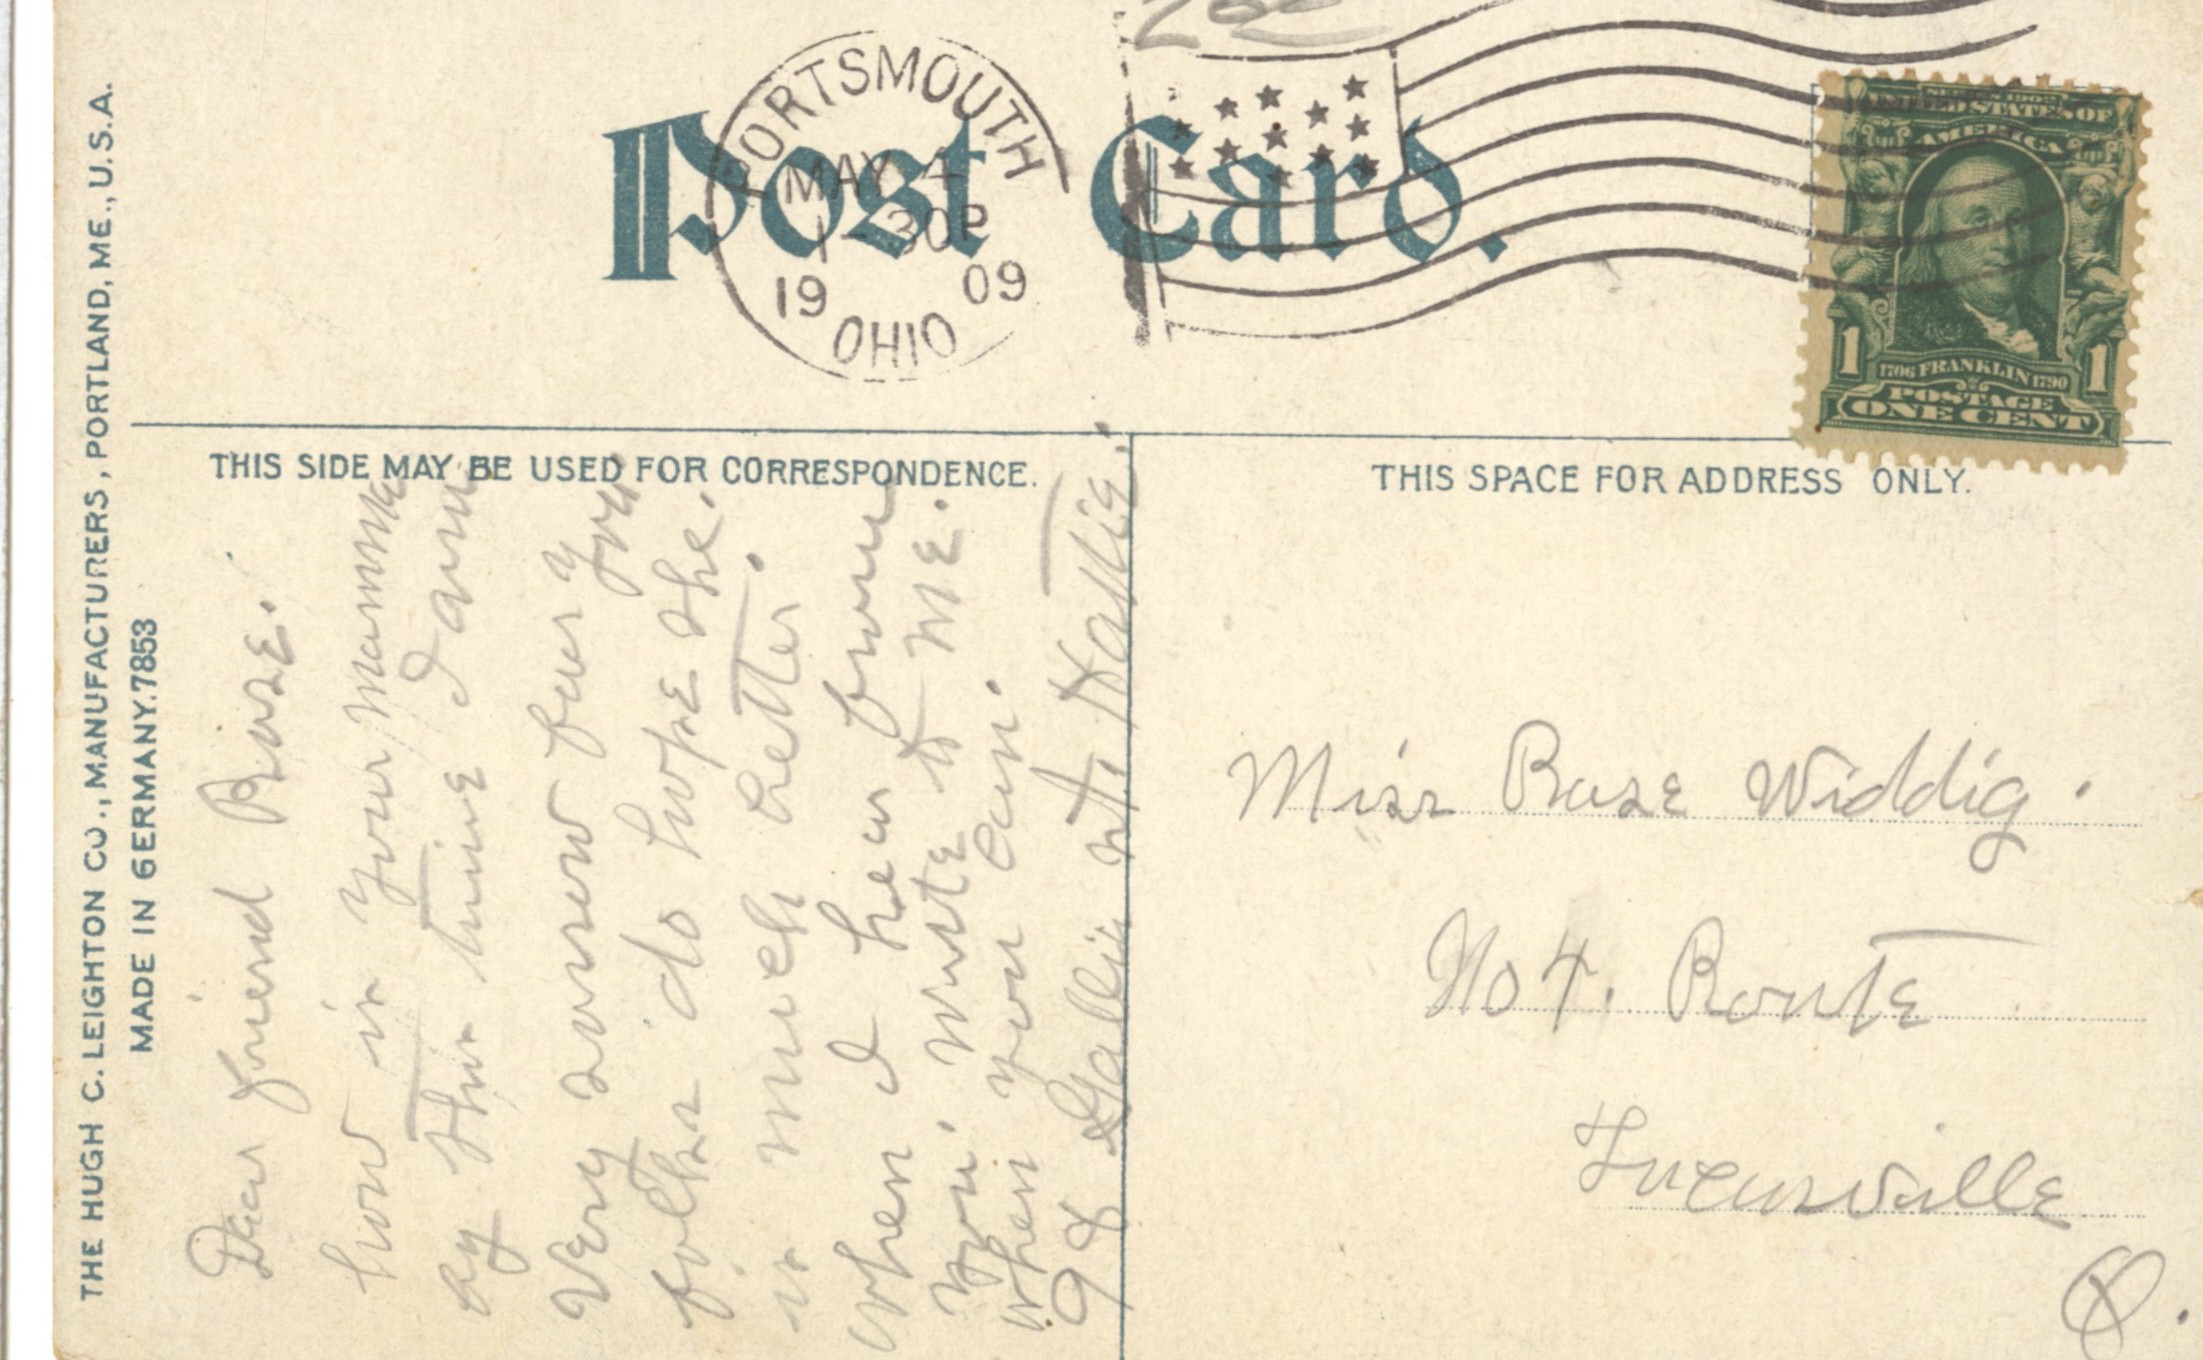 THE HUGH C. LEIGHTON CO., MANUFACTURERS, PORTLAND, ME., U.S.A.
MADE IN GERMANY. 7853
PORTSMOUTH
MAY 4
1-30P
19 09
OHIO
Post Card.
UNITED STATES OF
AMERICA
1 1706 FRANKLIN 1790 1
POSTAGE
ONE CENT
THIS SIDE MAY BE USED FOR CORRESPONDENCE.
Dear friend Rose.
how is your mamma
by this time I am
Very sorrow for you
folks do hope she.
is much better.
When I hear from
you. write to me.
when you can.
98 Gallia st. Hattie.
THIS SPACE FOR ADDRESS ONLY.
Miss Rose Widdig.
No 4. Route
Lucasville
O.